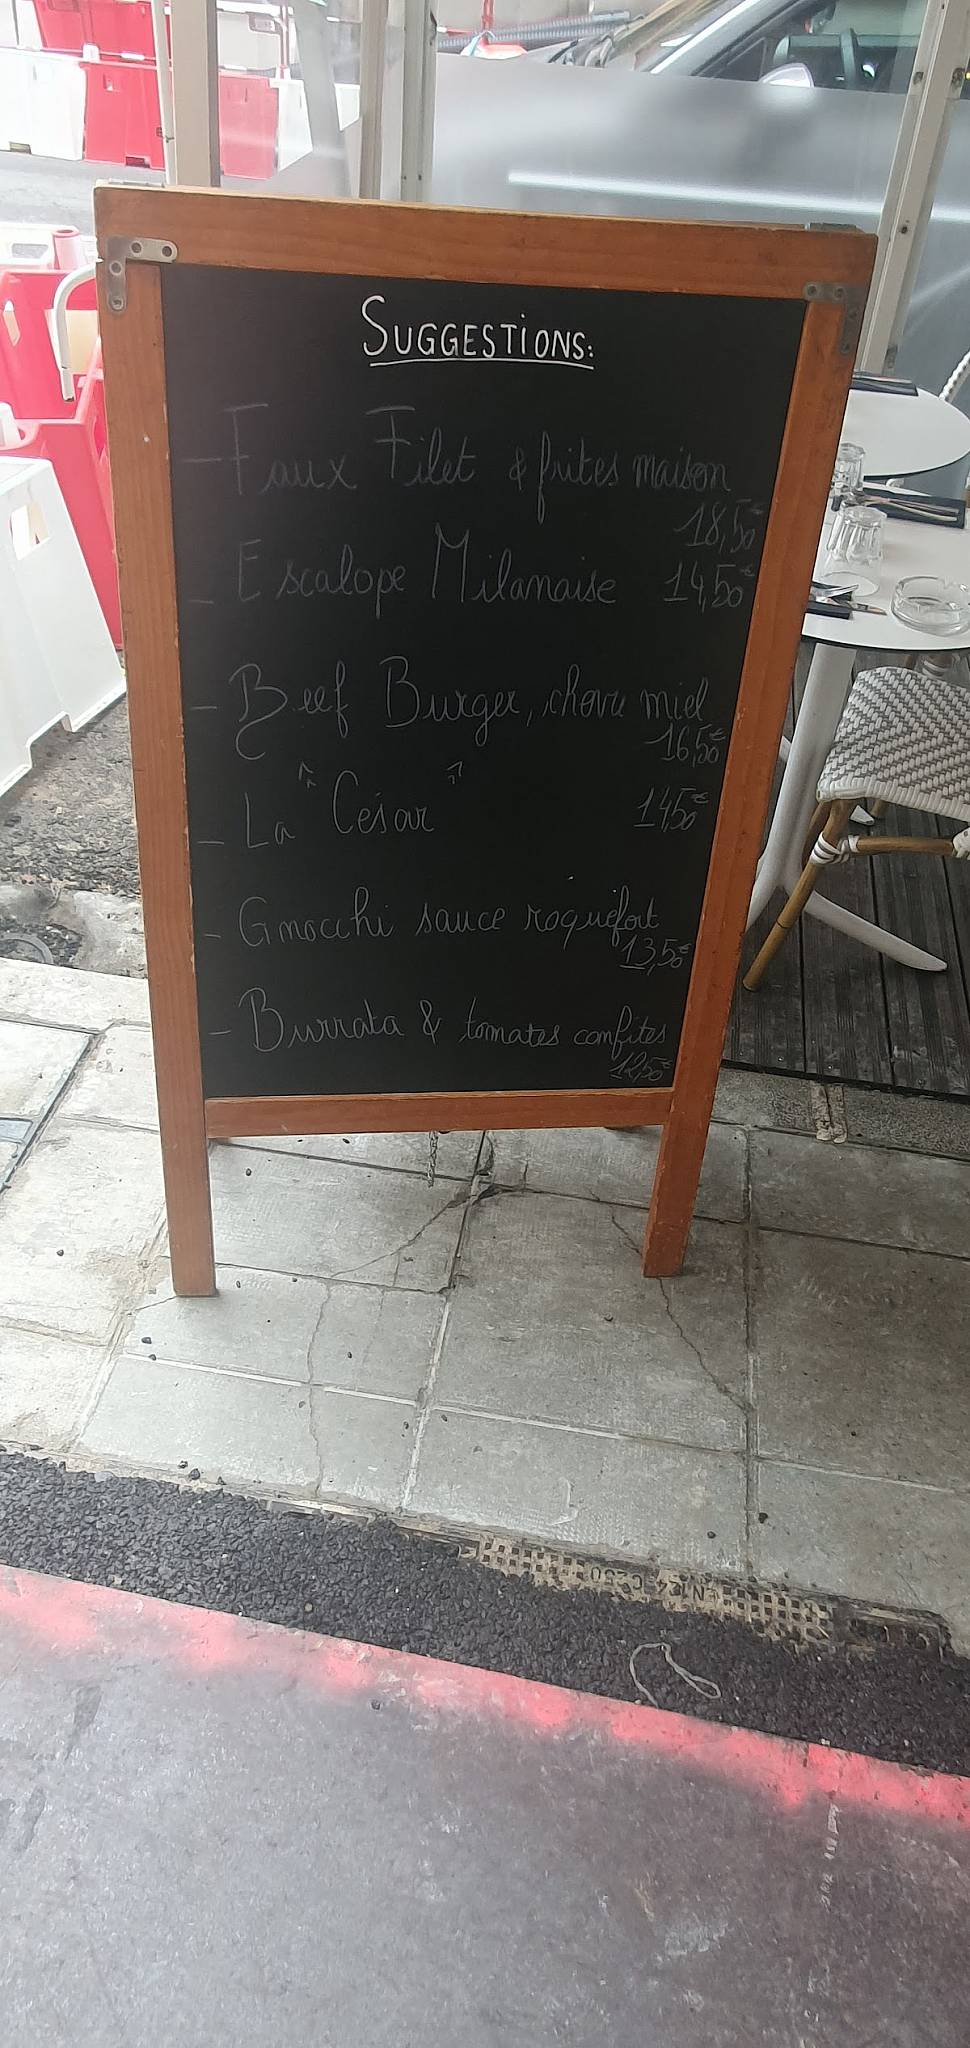 SUGGESTIONS:
- Faux Filet & frites maison
18,50€
- Escalope Milanaise 14,50€
- Beef Burger, chèvre miel
16,50€
- La "César" 14,50€
- Gnocchi sauce roquefort
13,50€
- Burrata & tomates confites
12,50€